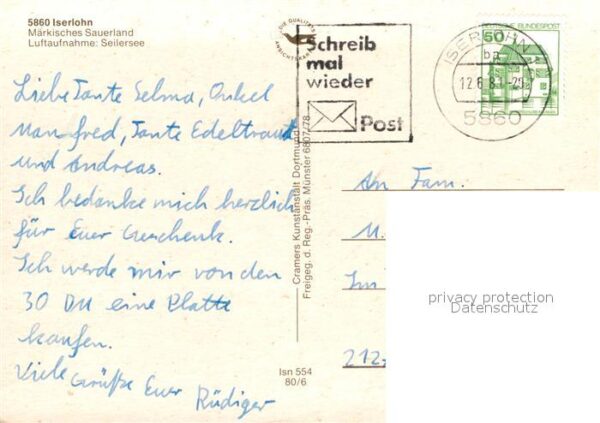 5860 Iserlohn
Märkisches Sauerland
Luftaufnahme: Seilersee
DIE QUALITÄTS
ANSICHTSKARTE
Schreib
mal
wieder
Post
ISERLOHN 1
bp
12.6.81-20
5860
DEUTSCHE BUNDESPOST
50
Liebe Tante Selma, Onkel
Manfred, Tante Edeltraut
und Andreas.
Ich bedanke mich herzlich
für Euer Geschenk.
Ich werde mir von den
30 DM eine Platte
kaufen.
Viele Grüße Euer Rüdiger
Cramers Kunstanstalt Dortmund
Freigeg. d. Reg.-Präs. Münster 6807/78
Isn 554
80/6
An Fam.
M.
Im
212
privacy protection
Datenschutz